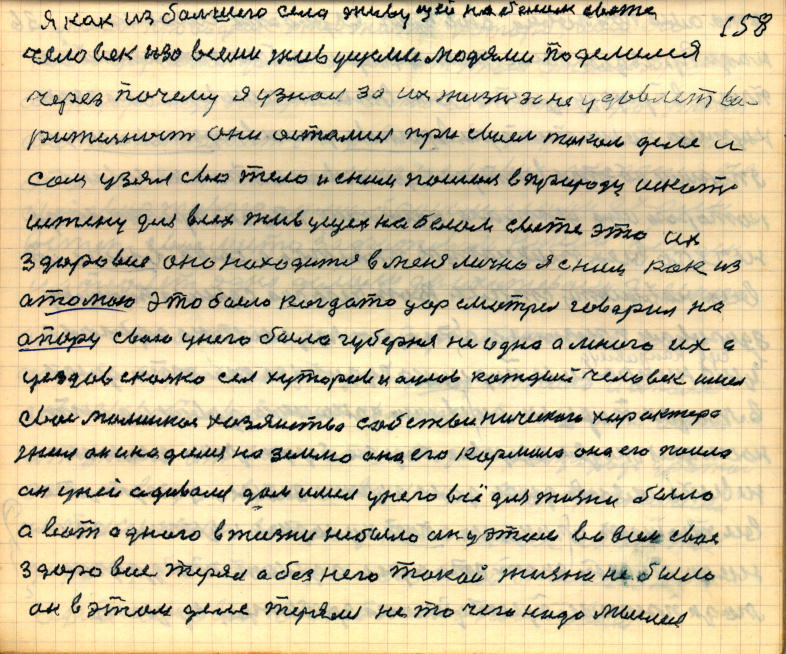 158
я как из большего села живущей на белом свете
человек изо всеми живущими людями поделился
через почему я узнал за их жизнь за не удовлетва
рительност они остались при своем таком деле и
сам узял сваё тело и сним пошол в природу искать
истену для всех живущех на белом свете это их
здоровие оно находится в меня лично я сним как из
атомою это было когдато цар смотрел говарил на
апору свою унего была губерня не одна а много их а
уездов сколко сел хуторов и аулов каждий человек имел
свое маликое хозяйство собственического характера
жил он и надеялся на землю она его кормила она его поила
он уней адевался дом имел унего всё для жизни было
а вот адного в жизни небыло он у этом во всем свое
здоровие терял а без него такой жизни не было
он в этом деле терял не то чего надо мыслил